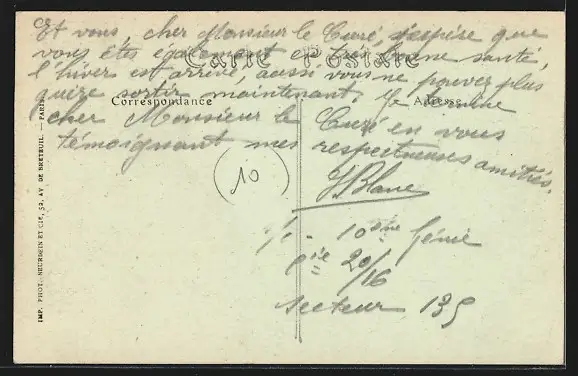 Et vous, cher Monsieur le Curé, j'espère que
vous êtes également en très bonne santé,
l'hiver est arrivé, aussi vous ne pouvez plus
guère sortir maintenant. Je termine
cher Monsieur le Curé en vous
témoignant mes respectueuses amitiés.
Carte Postale
Correspondance
Adresse
J Blanc
10
10ème Génie
Cie 20/16
secteur 139
IMP. PHOT. NEURDEIN ET CIE, 52, AV. DE BRETEUIL. — PARIS